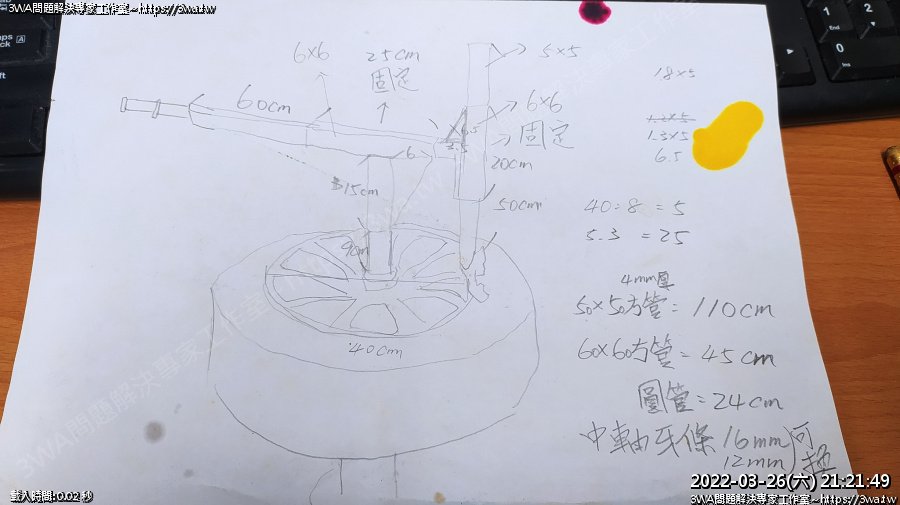 3WA問題解決專家工作室~https://3wa.tw
6×6
25cm
固定
5×5
18×5
60cm
6×6
固定
1.2×5
1.3×5
6.5
6.5
3.5
6
20cm
15cm
50cm
40÷8=5
5.3=25
9cm
4mm厚
50×50方管=110cm
60×60方管=45cm
40cm
圓管=24cm
中軸牙條 16mm
12mm
可換
2022-03-26(六) 21:21:49
載入時間:0.02 秒
3WA問題解決專家工作室~https://3wa.tw